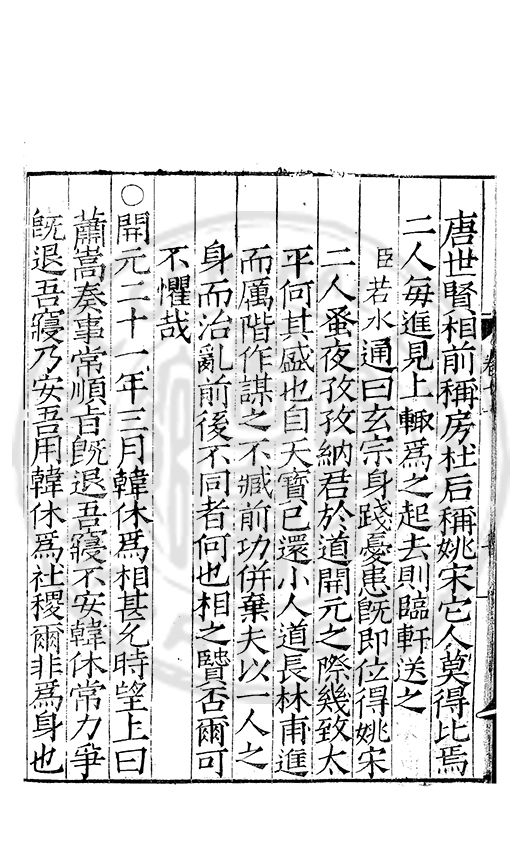 唐世賢相前稱房杜后稱姚宋它人莫得比焉
二人每進見上輙爲之起去則臨軒送之
臣若水通曰玄宗身踐憂患旣即位得姚宋
二人蚤夜孜孜納君於道開元之際幾致太
平何其盛也自天寶已還小人道長林甫進
而厲階作謀之不臧前功併棄夫以一人之
身而治亂前後不同者何也相之賢否爾可
不懼哉
○開元二十一年三月韓休爲相甚允時望上曰
蕭嵩奏事常順旨旣退吾寢不安韓休常力爭
旣退吾寢乃安吾用韓休爲社稷爾非爲身也